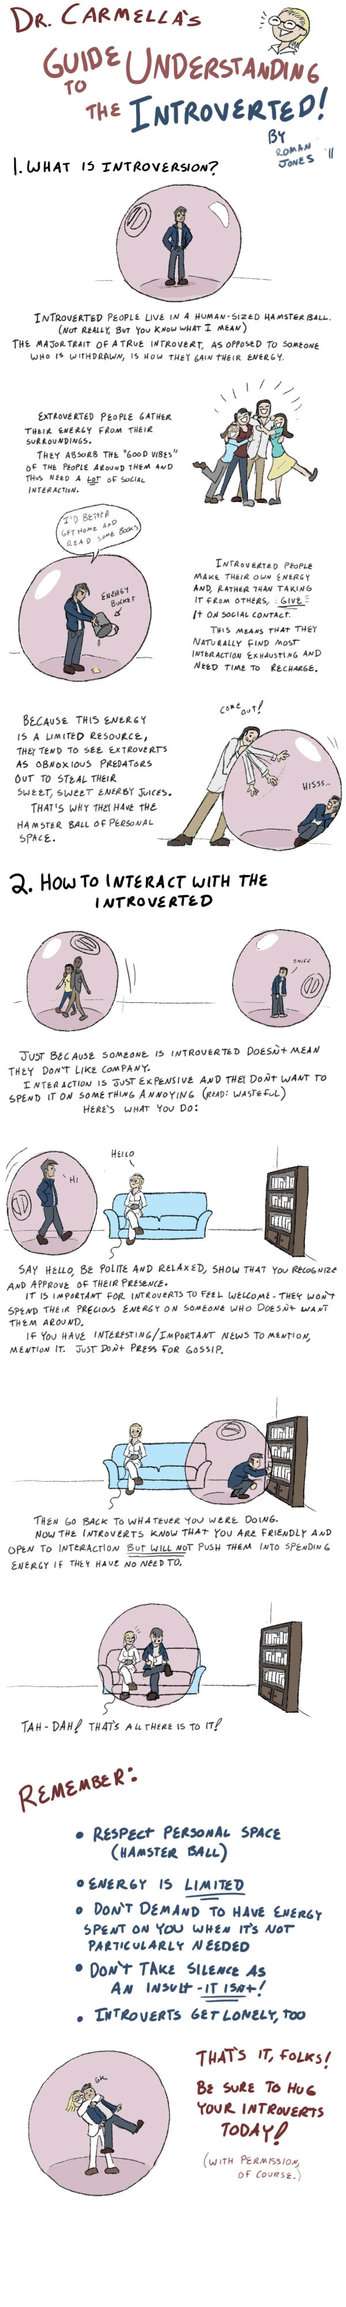 DR. CARMELLA'S
GUIDE TO UNDERSTANDING
THE INTROVERTED!
BY
ROMAN
JONES '11
1. WHAT IS INTROVERSION?
INTROVERTED PEOPLE LIVE IN A HUMAN-SIZED HAMSTER BALL.
(NOT REALLY, BUT YOU KNOW WHAT I MEAN)
THE MAJOR TRAIT OF A TRUE INTROVERT, AS OPPOSED TO SOMEONE
WHO IS WITHDRAWN, IS HOW THEY GAIN THEIR ENERGY.
EXTROVERTED PEOPLE GATHER
THEIR ENERGY FROM THEIR
SURROUNDINGS.
THEY ABSORB THE "GOOD VIBES"
OF THE PEOPLE AROUND THEM AND
THUS NEED A LOT OF SOCIAL
INTERACTION.
I'D BETTER
GET HOME AND
READ SOME BOOKS
ENERGY
BUCKET
INTROVERTED PEOPLE
MAKE THEIR OWN ENERGY
AND, RATHER THAN TAKING
IT FROM OTHERS, GIVE
IT ON SOCIAL CONTACT.
THIS MEANS THAT THEY
NATURALLY FIND MOST
INTERACTION EXHAUSTING AND
NEED TIME TO RECHARGE.
COME OUT!
HISSS..
BECAUSE THIS ENERGY
IS A LIMITED RESOURCE,
THEY TEND TO SEE EXTROVERTS
AS OBNOXIOUS PREDATORS
OUT TO STEAL THEIR
SWEET, SWEET ENERGY JUICES.
THAT'S WHY THEY HAVE THE
HAMSTER BALL OF PERSONAL
SPACE.
2. HOW TO INTERACT WITH THE
INTROVERTED
JUST BECAUSE SOMEONE IS INTROVERTED DOESN'T MEAN
THEY DON'T LIKE COMPANY.
INTERACTION IS JUST EXPENSIVE AND THEY DON'T WANT TO
SPEND IT ON SOMETHING ANNOYING (READ: WASTEFUL)
HERE'S WHAT YOU DO:
HELLO
HI
SAY HELLO, BE POLITE AND RELAXED, SHOW THAT YOU RECOGNIZE
AND APPROVE OF THEIR PRESENCE.
IT IS IMPORTANT FOR INTROVERTS TO FEEL WELCOME - THEY WON'T
SPEND THEIR PRECIOUS ENERGY ON SOMEONE WHO DOESN'T WANT
THEM AROUND.
IF YOU HAVE INTERESTING/IMPORTANT NEWS TO MENTION,
MENTION IT. JUST DON'T PRESS FOR GOSSIP.
THEN GO BACK TO WHATEVER YOU WERE DOING.
NOW THE INTROVERTS KNOW THAT YOU ARE FRIENDLY AND
OPEN TO INTERACTION BUT WILL NOT PUSH THEM INTO SPENDING
ENERGY IF THEY HAVE NO NEED TO.
TAH-DAH! THAT'S ALL THERE IS TO IT!
REMEMBER:
• RESPECT PERSONAL SPACE
(HAMSTER BALL)
• ENERGY IS LIMITED
• DON'T DEMAND TO HAVE ENERGY
SPENT ON YOU WHEN IT'S NOT
PARTICULARLY NEEDED
• DON'T TAKE SILENCE AS
AN INSULT - IT ISN'T!
• INTROVERTS GET LONELY, TOO
THAT'S IT, FOLKS!
BE SURE TO HUG
YOUR INTROVERTS
TODAY!
(WITH PERMISSION,
OF COURSE.)